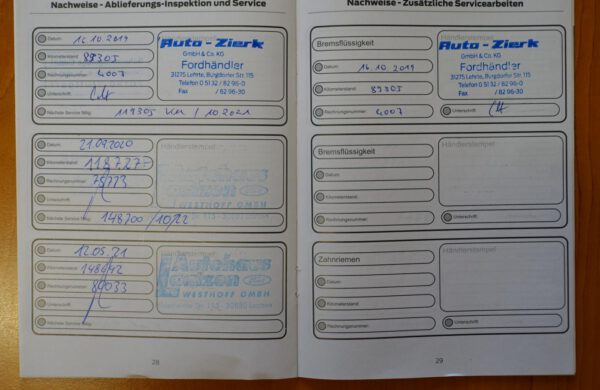 Nachweise - Ablieferungs-Inspektion und Service
Datum: 16.10.2019
Kilometerstand: 89305
Rechnungsnummer: 4007
Unterschrift:
Nächste Service fällig: 119305 km / 10.2021
Auto-Zierk
GmbH & Co. KG
Fordhändler
31275 Lehrte, Burgdorfer Str. 115
Telefon 0 51 32 / 82 96-0
Fax / 82 96-30
Datum: 21.09.2020
Kilometerstand: 118727
Rechnungsnummer: 75773
Unterschrift:
Nächste Service fällig: 148700 / 10/22
Händlerstempel
Autohaus
WESTHOFF GMBH
Datum: 12.05.21
Kilometerstand: 148642
Rechnungsnummer: 80033
Unterschrift:
Nächste Service fällig:
Autohaus
WESTHOFF GMBH
28
Nachweise - Zusätzliche Servicearbeiten
Bremsflüssigkeit
Datum: 16.10.2019
Kilometerstand: 89305
Rechnungsnummer: 4007
Händlerstempel
Auto-Zierk
GmbH & Co. KG
Fordhändler
31275 Lehrte, Burgdorfer Str. 115
Telefon 0 51 32 / 82 96-0
Fax / 82 96-30
Unterschrift:
Bremsflüssigkeit
Datum:
Kilometerstand:
Rechnungsnummer:
Händlerstempel
Unterschrift:
Zahnriemen
Datum:
Kilometerstand:
Rechnungsnummer:
Händlerstempel
Unterschrift:
29